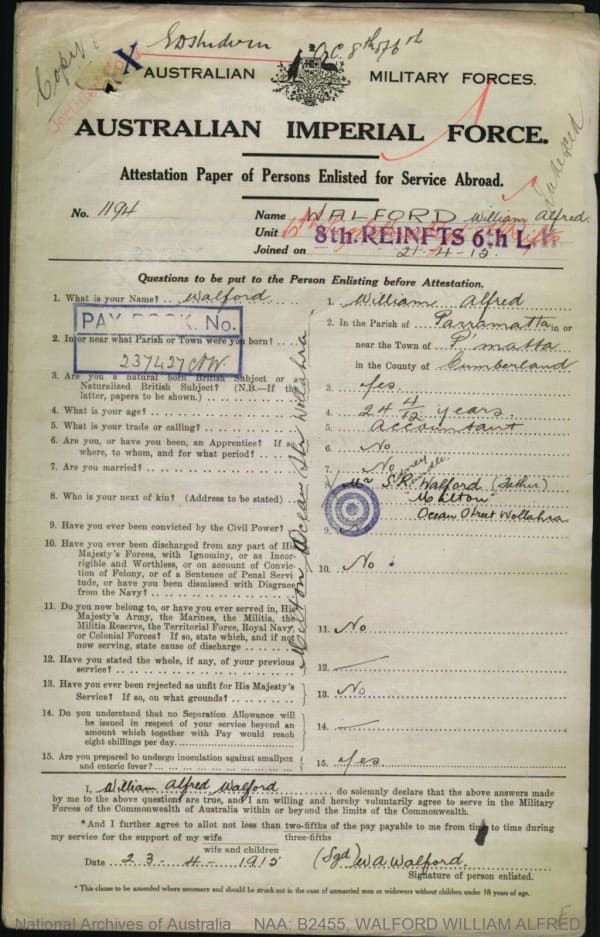 Copy.
O.C. 8th of 6th
AUSTRALIAN MILITARY FORCES.
AUSTRALIAN IMPERIAL FORCE.
Indexed
Attestation Paper of Persons Enlisted for Service Abroad.
No. 1194
Name WALFORD William Alfred.
Unit 8th. REINFTS 6th L.H.
Joined on 21-4-15
Questions to be put to the Person Enlisting before Attestation.
1. What is your Name? Walford
1. William Alfred
PAY BOOK. No.
237427
2. In or near what Parish or Town were you born?
2. In the Parish of Parramatta in or
near the Town of P'matta
in the County of Cumberland
3. Are you a natural born British Subject or a
Naturalized British Subject? (N.B.—If the
latter, papers to be shown.)
3. Yes.
4. What is your age?
4. 24 4/12 years.
5. What is your trade or calling?
5. Accountant
6. Are you, or have you been, an Apprentice? If so
where, to whom, and for what period?
6. No
7. Are you married?
7. No
8. Who is your next of kin? (Address to be stated)
Mr S.R. Walford (Father)
"Milton"
Ocean Street Wollahra
Milton Ocean Str Wollahra
9. Have you ever been convicted by the Civil Power?
9. No
10. Have you ever been discharged from any part of His
Majesty's Forces, with Ignominy, or as Incor-
rigible and Worthless, or on account of Convic-
tion of Felony, or of a Sentence of Penal Servi
tude, or have you been dismissed with Disgrace
from the Navy?
10. No
11. Do you now belong to, or have you ever served in, His
Majesty's Army, the Marines, the Militia, the
Militia Reserve, the Territorial Force, Royal Navy,
or Colonial Forces? If so, state which, and if not
now serving, state cause of discharge
11. No
12. Have you stated the whole, if any, of your previous
service?
12. —
13. Have you ever been rejected as unfit for His Majesty's
Service? If so, on what grounds?
13. No
14. Do you understand that no Separation Allowance will
be issued in respect of your service beyond an
amount which together with Pay would reach
eight shillings per day.
14. —
15. Are you prepared to undergo inoculation against smallpox
and enteric fever?
15. Yes
I, William Alfred Walford do solemnly declare that the above answers made
by me to the above questions are true, and I am willing and hereby voluntarily agree to serve in the Military
Forces of the Commonwealth of Australia within or beyond the limits of the Commonwealth.
*And I further agree to allot not less than two-fifths of the pay payable to me from time to time during
three-fifths
my service for the support of my wife
wife and children
Date 23-4-1915 (Sgd) W A Walford.
Signature of person enlisted.
* This clause to be amended where necessary and should be struck out in the case of unmarried men or widowers without children under 18 years of age.
National Archives of Australia NAA: B2455, WALFORD WILLIAM ALFRED